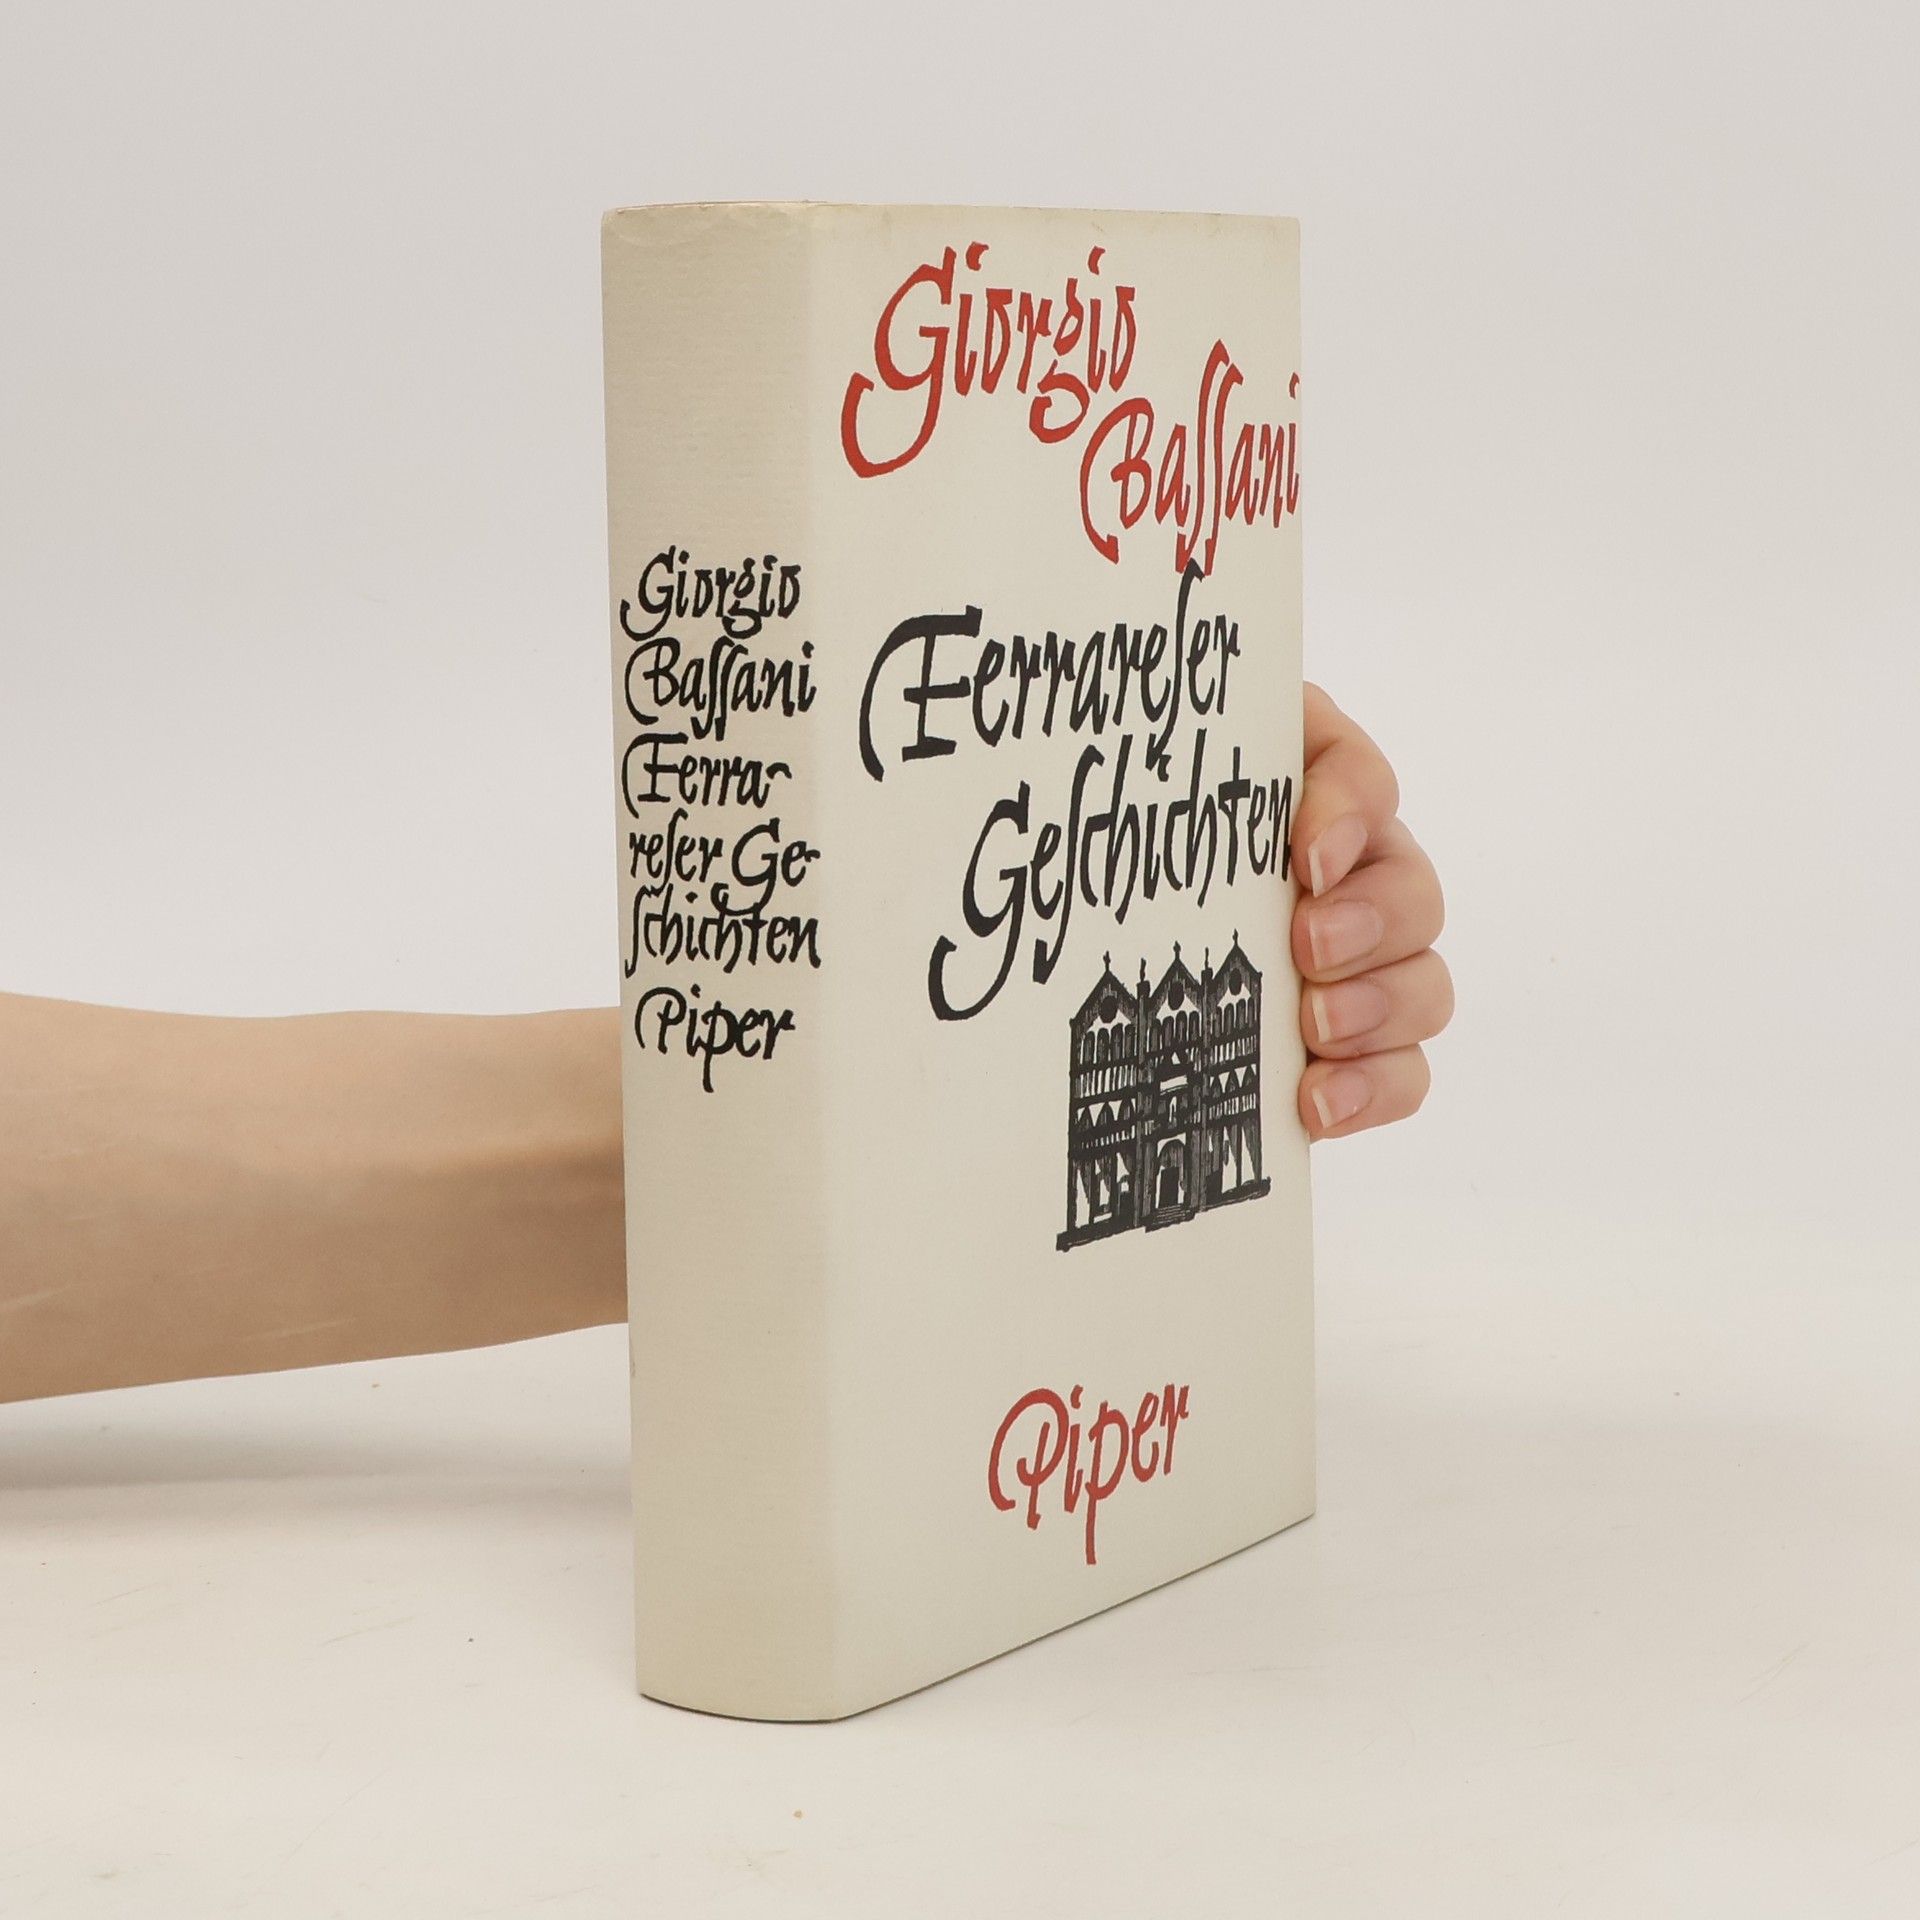 Giorgio
Baſſani
Ferra-
reſer Ge-
ſchichten
Piper
Giorgio
Baſſani
Ferrareſer
Geſchichten
Piper